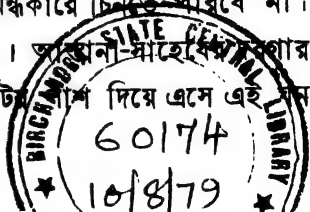 ন্ধকারে চিনতে পারবে না।
। আস্মানী-সাহেবের দরগার
পাশ দিয়ে এসে এই
BIRCHANDRA STATE CENTRAL LIBRARY
60174
10/8/79